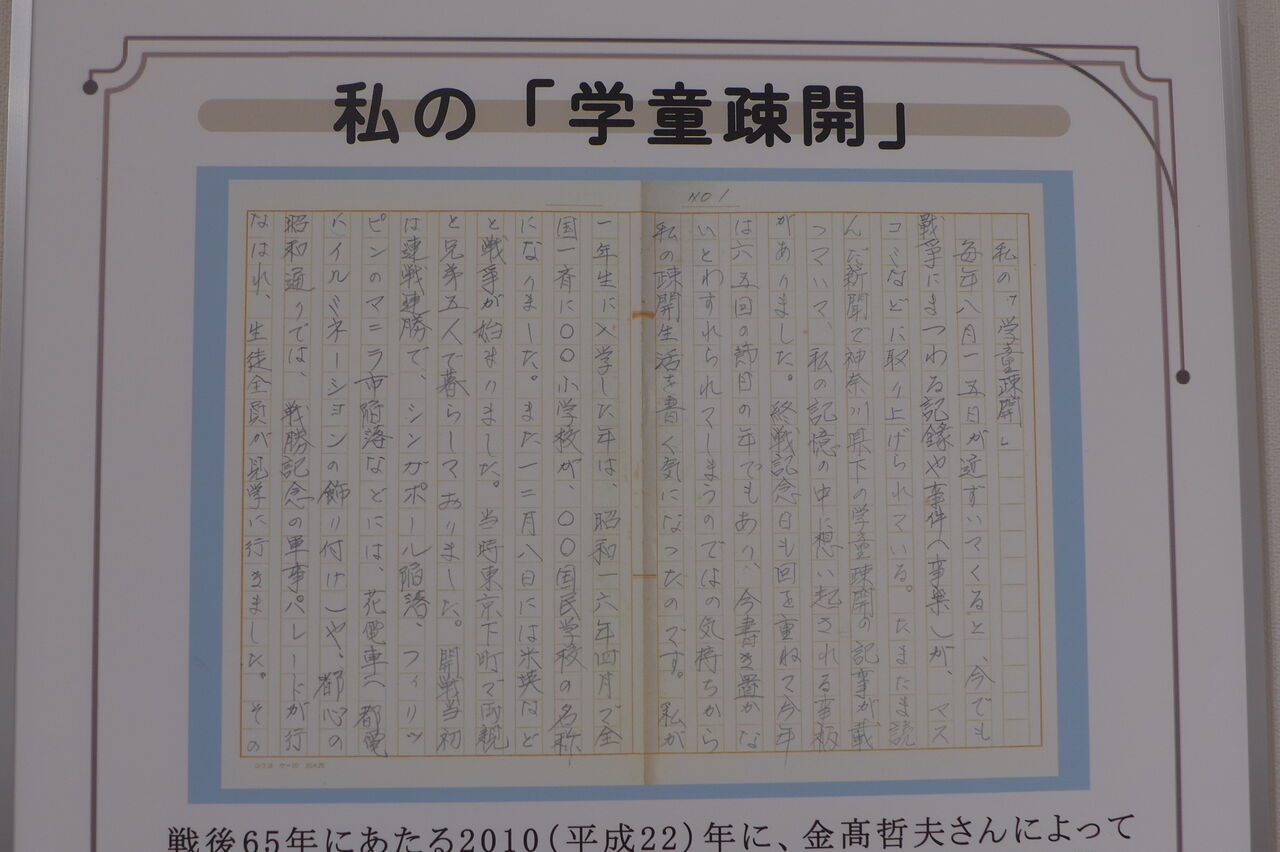 私の「学童疎開」
NO 1
私の「学童疎開」
毎年八月一五日が近ずいてくると、今でも
戦争にまつわる記録や事件(事案)が、マス
コミなどに取り上げられている。たまたま読
んだ新聞で神奈川県下の学童疎開の記事が載
っていて、私の記憶の中に想い起される事柄
がありました。終戦記念日も回を重ねて今年
は六五回の節目の年でもあり、今書き置かな
いとわすれられてしまうのではの気持ちから
私の疎開生活を書く気になったのです。私が
一年生に入学した年は、昭和一六年四月で全
国一斉に〇〇小学校が、〇〇国民学校の名称
になりました。また一二月八日には米英など
と戦争が始まりました。当時東京下町で両親
と兄弟五人で暮らしておりました。開戦当初
は連戦連勝で、シンガポール陥落、フィリッ
ピンのマニラ市陥落などには、花電車(都電
にイルミネーションの飾り付け)や、都心の
昭和通りでは、戦勝記念の軍事パレードが行
なはれ、生徒全員が見学に行きました。その
コクヨ ケー10 20×20
戦後65年にあたる2010(平成22)年に、金髙哲夫さんによって